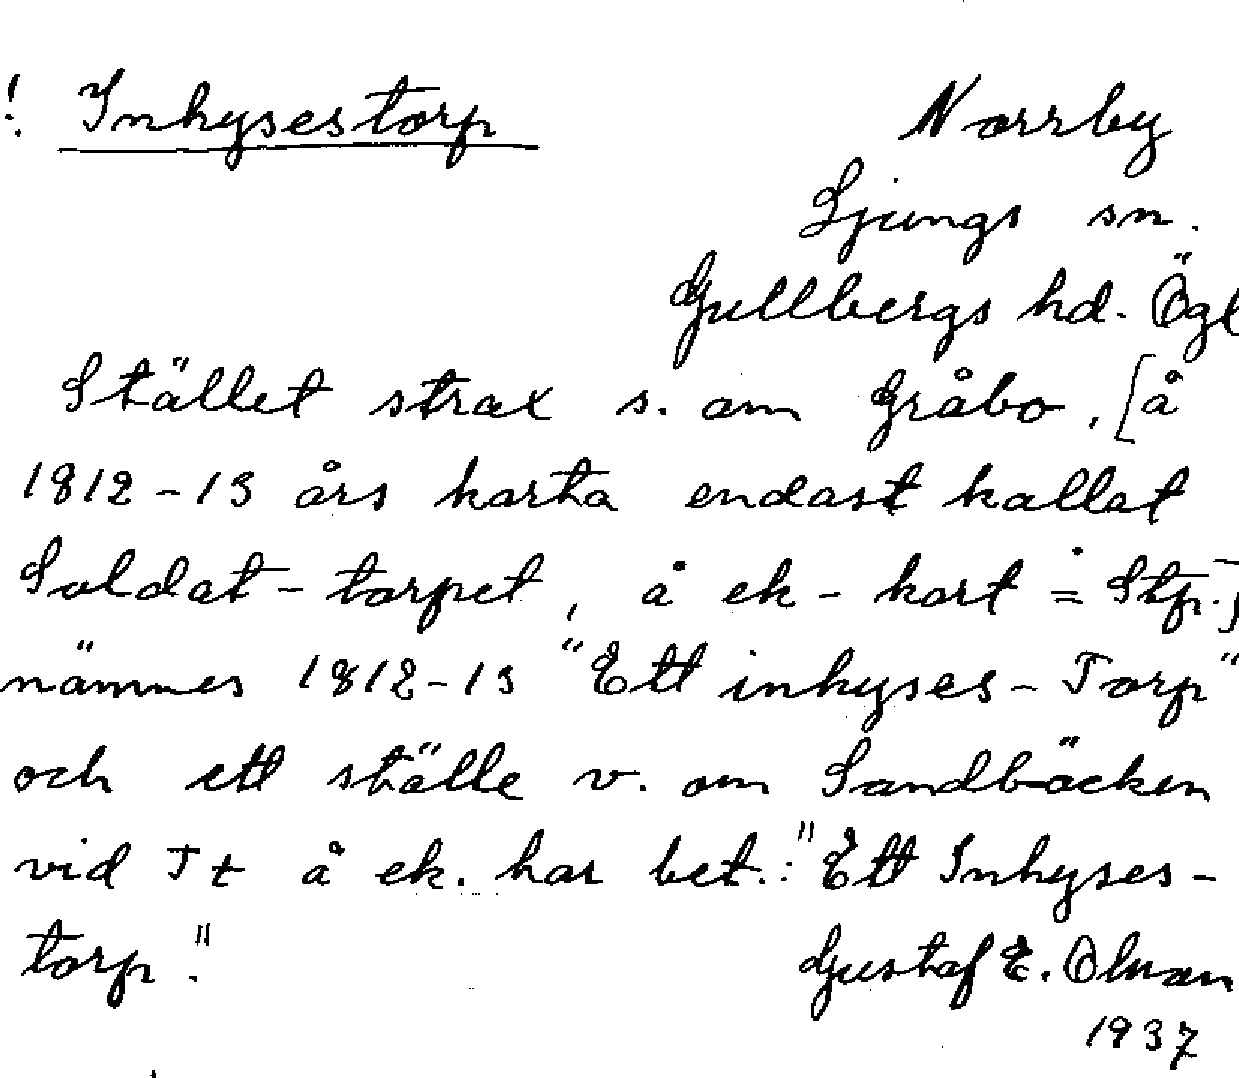 ! Inhysestorp
Norrby
Ljungs sn.
Gullbergs hd. Ögl
Stället strax s. om Gråbo, [å
1812-13 års karta endast kallat
Soldat-torpet, å ek-kart = Stp.]
nämnes 1812-13 "Ett inhyses-Torp"
och ett ställe v. om Sandbäcken
vid Tt å ek. har bet.: "Ett Inhyses-
torp."
Gustaf E. Olman
1937